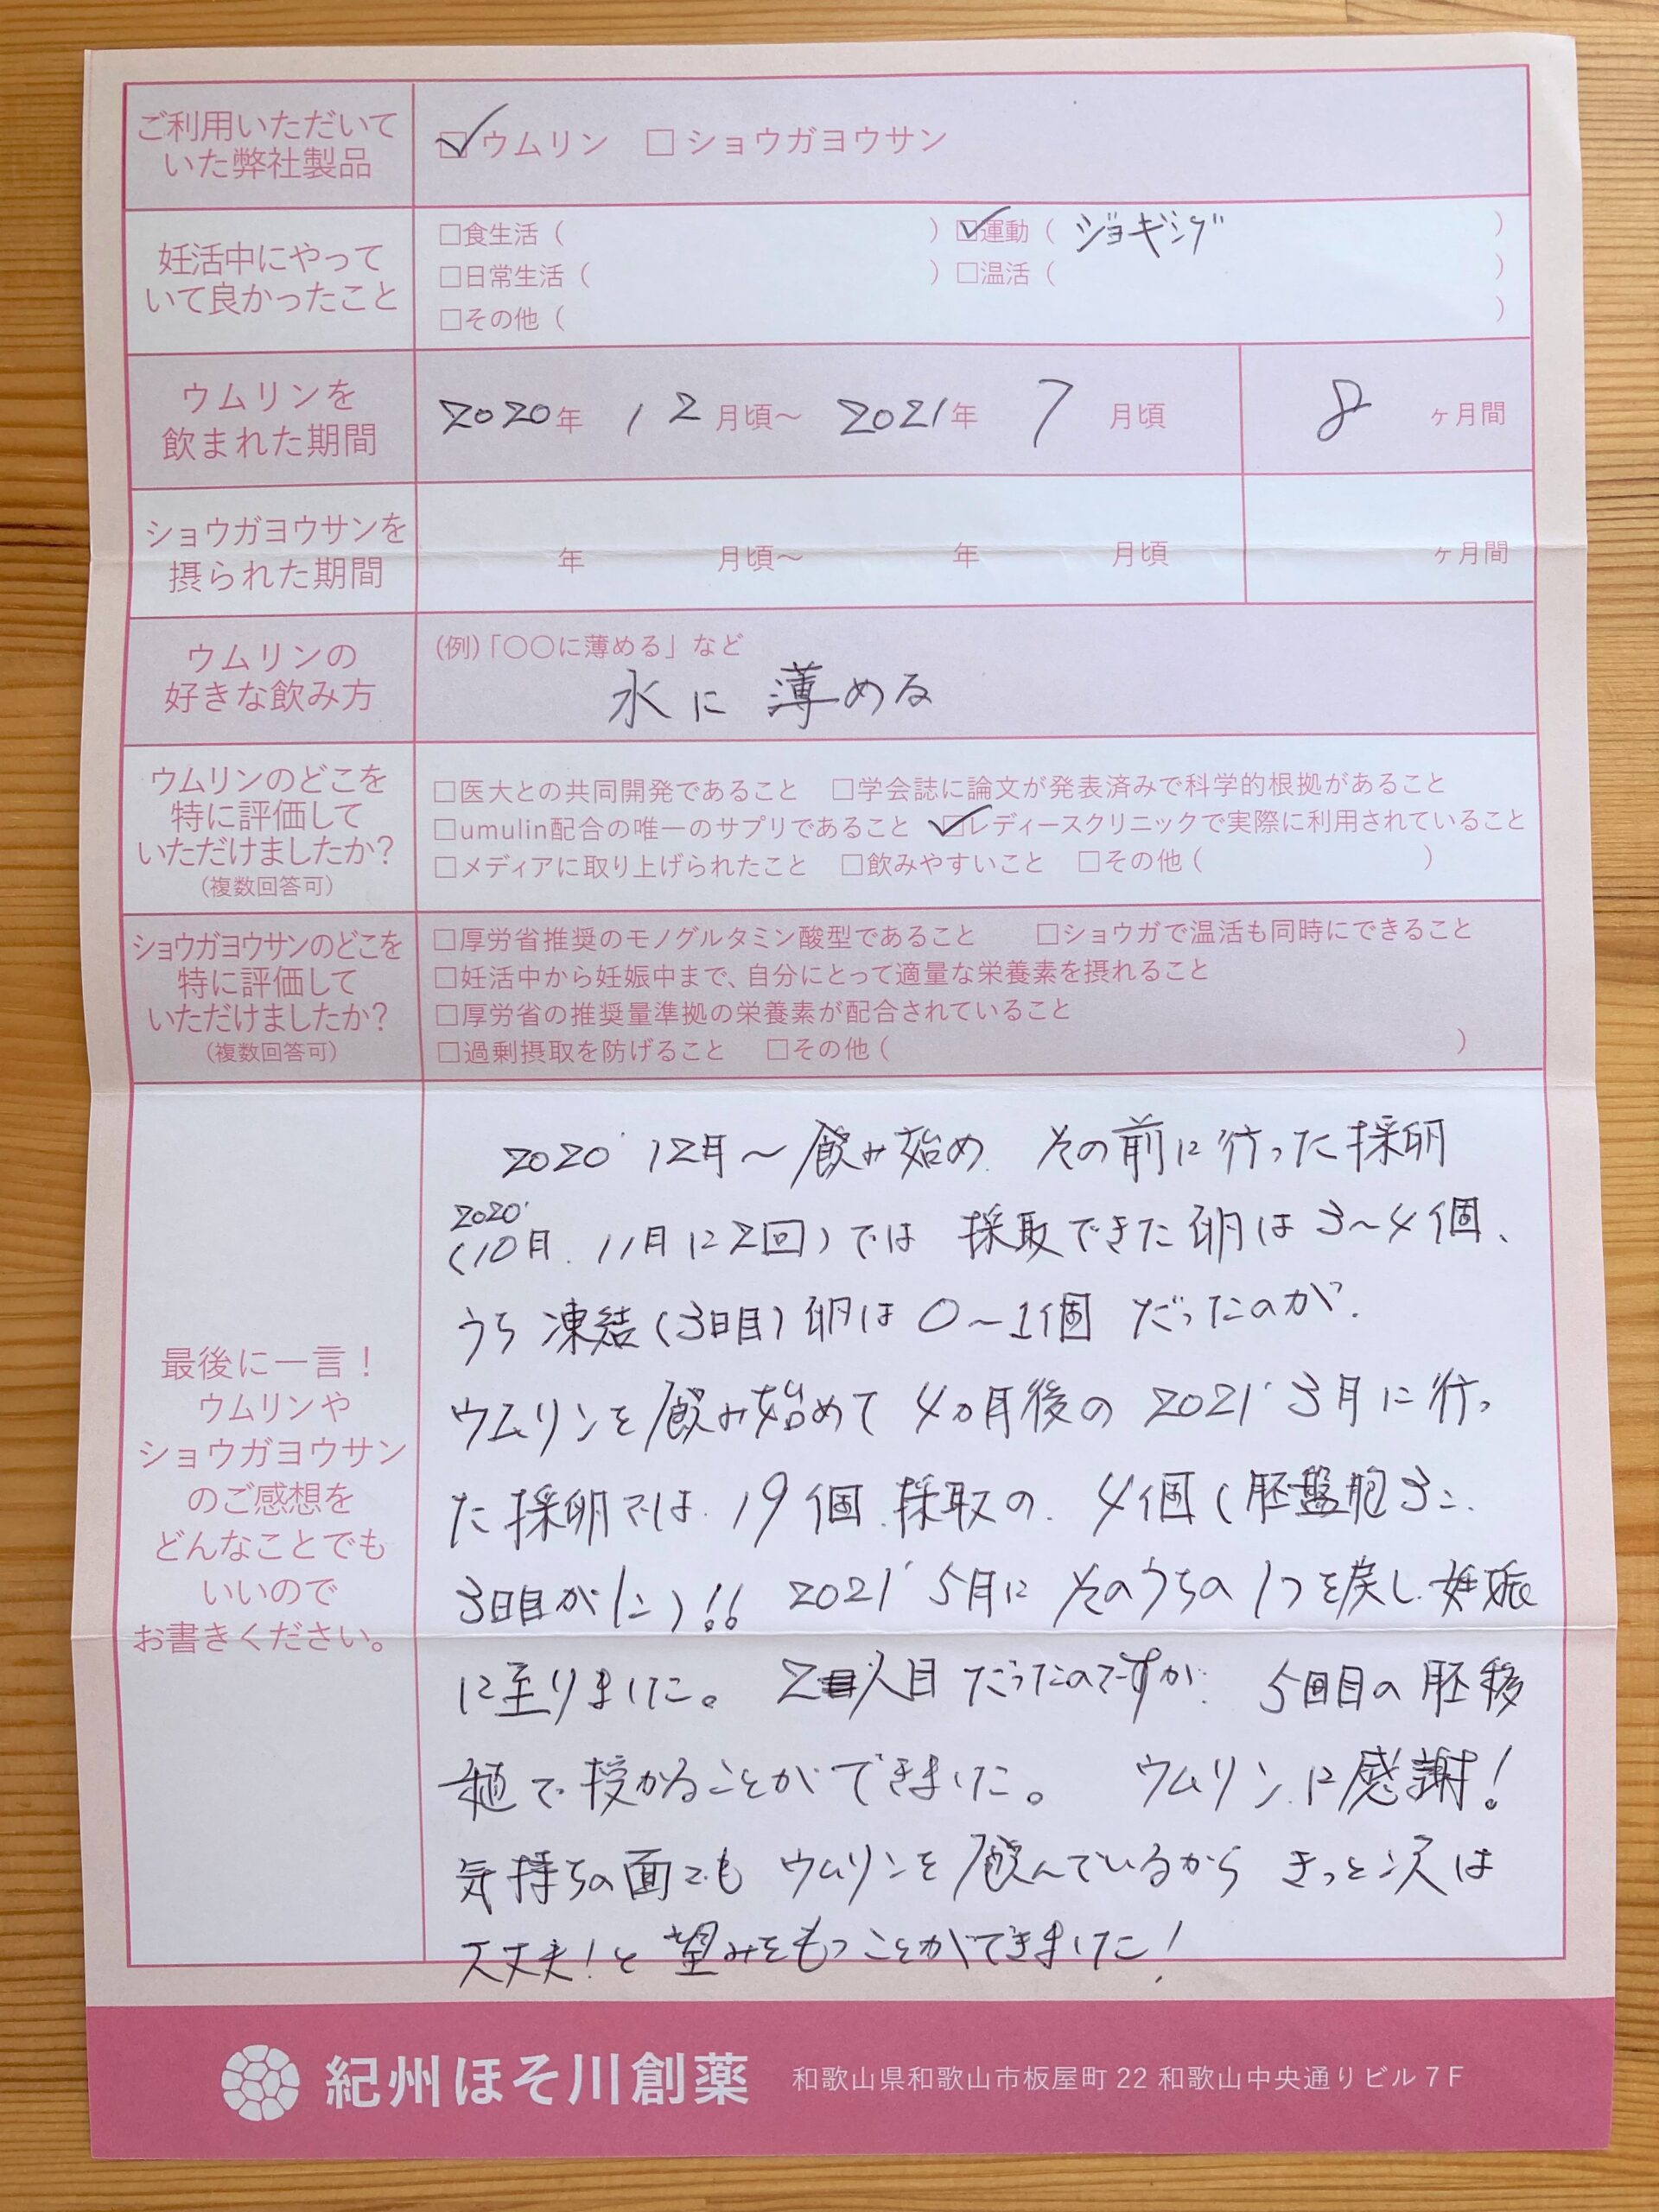 ご利用いただいて
いた弊社製品
☑ウムリン □ショウガヨウサン
妊活中にやって
いて良かったこと
□食生活（ ）☑運動（ジョギング ）
□日常生活（ ）□温活（ ）
□その他（ ）
ウムリンを
飲まれた期間
2020年 12月頃〜 2021年 7月頃 8ヶ月間
ショウガヨウサンを
摂られた期間
年 月頃〜 年 月頃 ヶ月間
ウムリンの
好きな飲み方
(例)「〇〇に薄める」など
水に薄める
ウムリンのどこを
特に評価して
いただけましたか?
(複数回答可)
□医大との共同開発であること □学会誌に論文が発表済みで科学的根拠があること
□umulin配合の唯一のサプリであること ☑レディースクリニックで実際に利用されていること
□メディアに取り上げられたこと □飲みやすいこと □その他（ ）
ショウガヨウサンのどこを
特に評価して
いただけましたか?
(複数回答可)
□厚労省推奨のモノグルタミン酸型であること □ショウガで温活も同時にできること
□妊活中から妊娠中まで、自分にとって適量な栄養素を摂れること
□厚労省の推奨量準拠の栄養素が配合されていること
□過剰摂取を防げること □その他（ ）
最後に一言！
ウムリンや
ショウガヨウサン
のご感想を
どんなことでも
いいので
お書きください。
2020' 12月〜飲み始め、その前に行った採卵
2020'
(10月、11月に2回)では 採取できた卵は3〜4個、
うち凍結(3日目)卵は0〜1個だったのが、
ウムリンを飲み始めて4ヵ月後の2021' 3月に行っ
た採卵では、19個、採取の、4個(胚盤胞3コ、
3日目が1コ)!! 2021' 5月にそのうちの1つを戻し、妊娠
に至りました。 2人目だったのですが、5回目の胚移
植で授かることができました。 ウムリンに感謝！
気持ちの面でもウムリンを飲んでいるからきっと次は
大丈夫！と望みをもつことができました！
紀州ほそ川創薬 和歌山県和歌山市板屋町22 和歌山中央通りビル7F